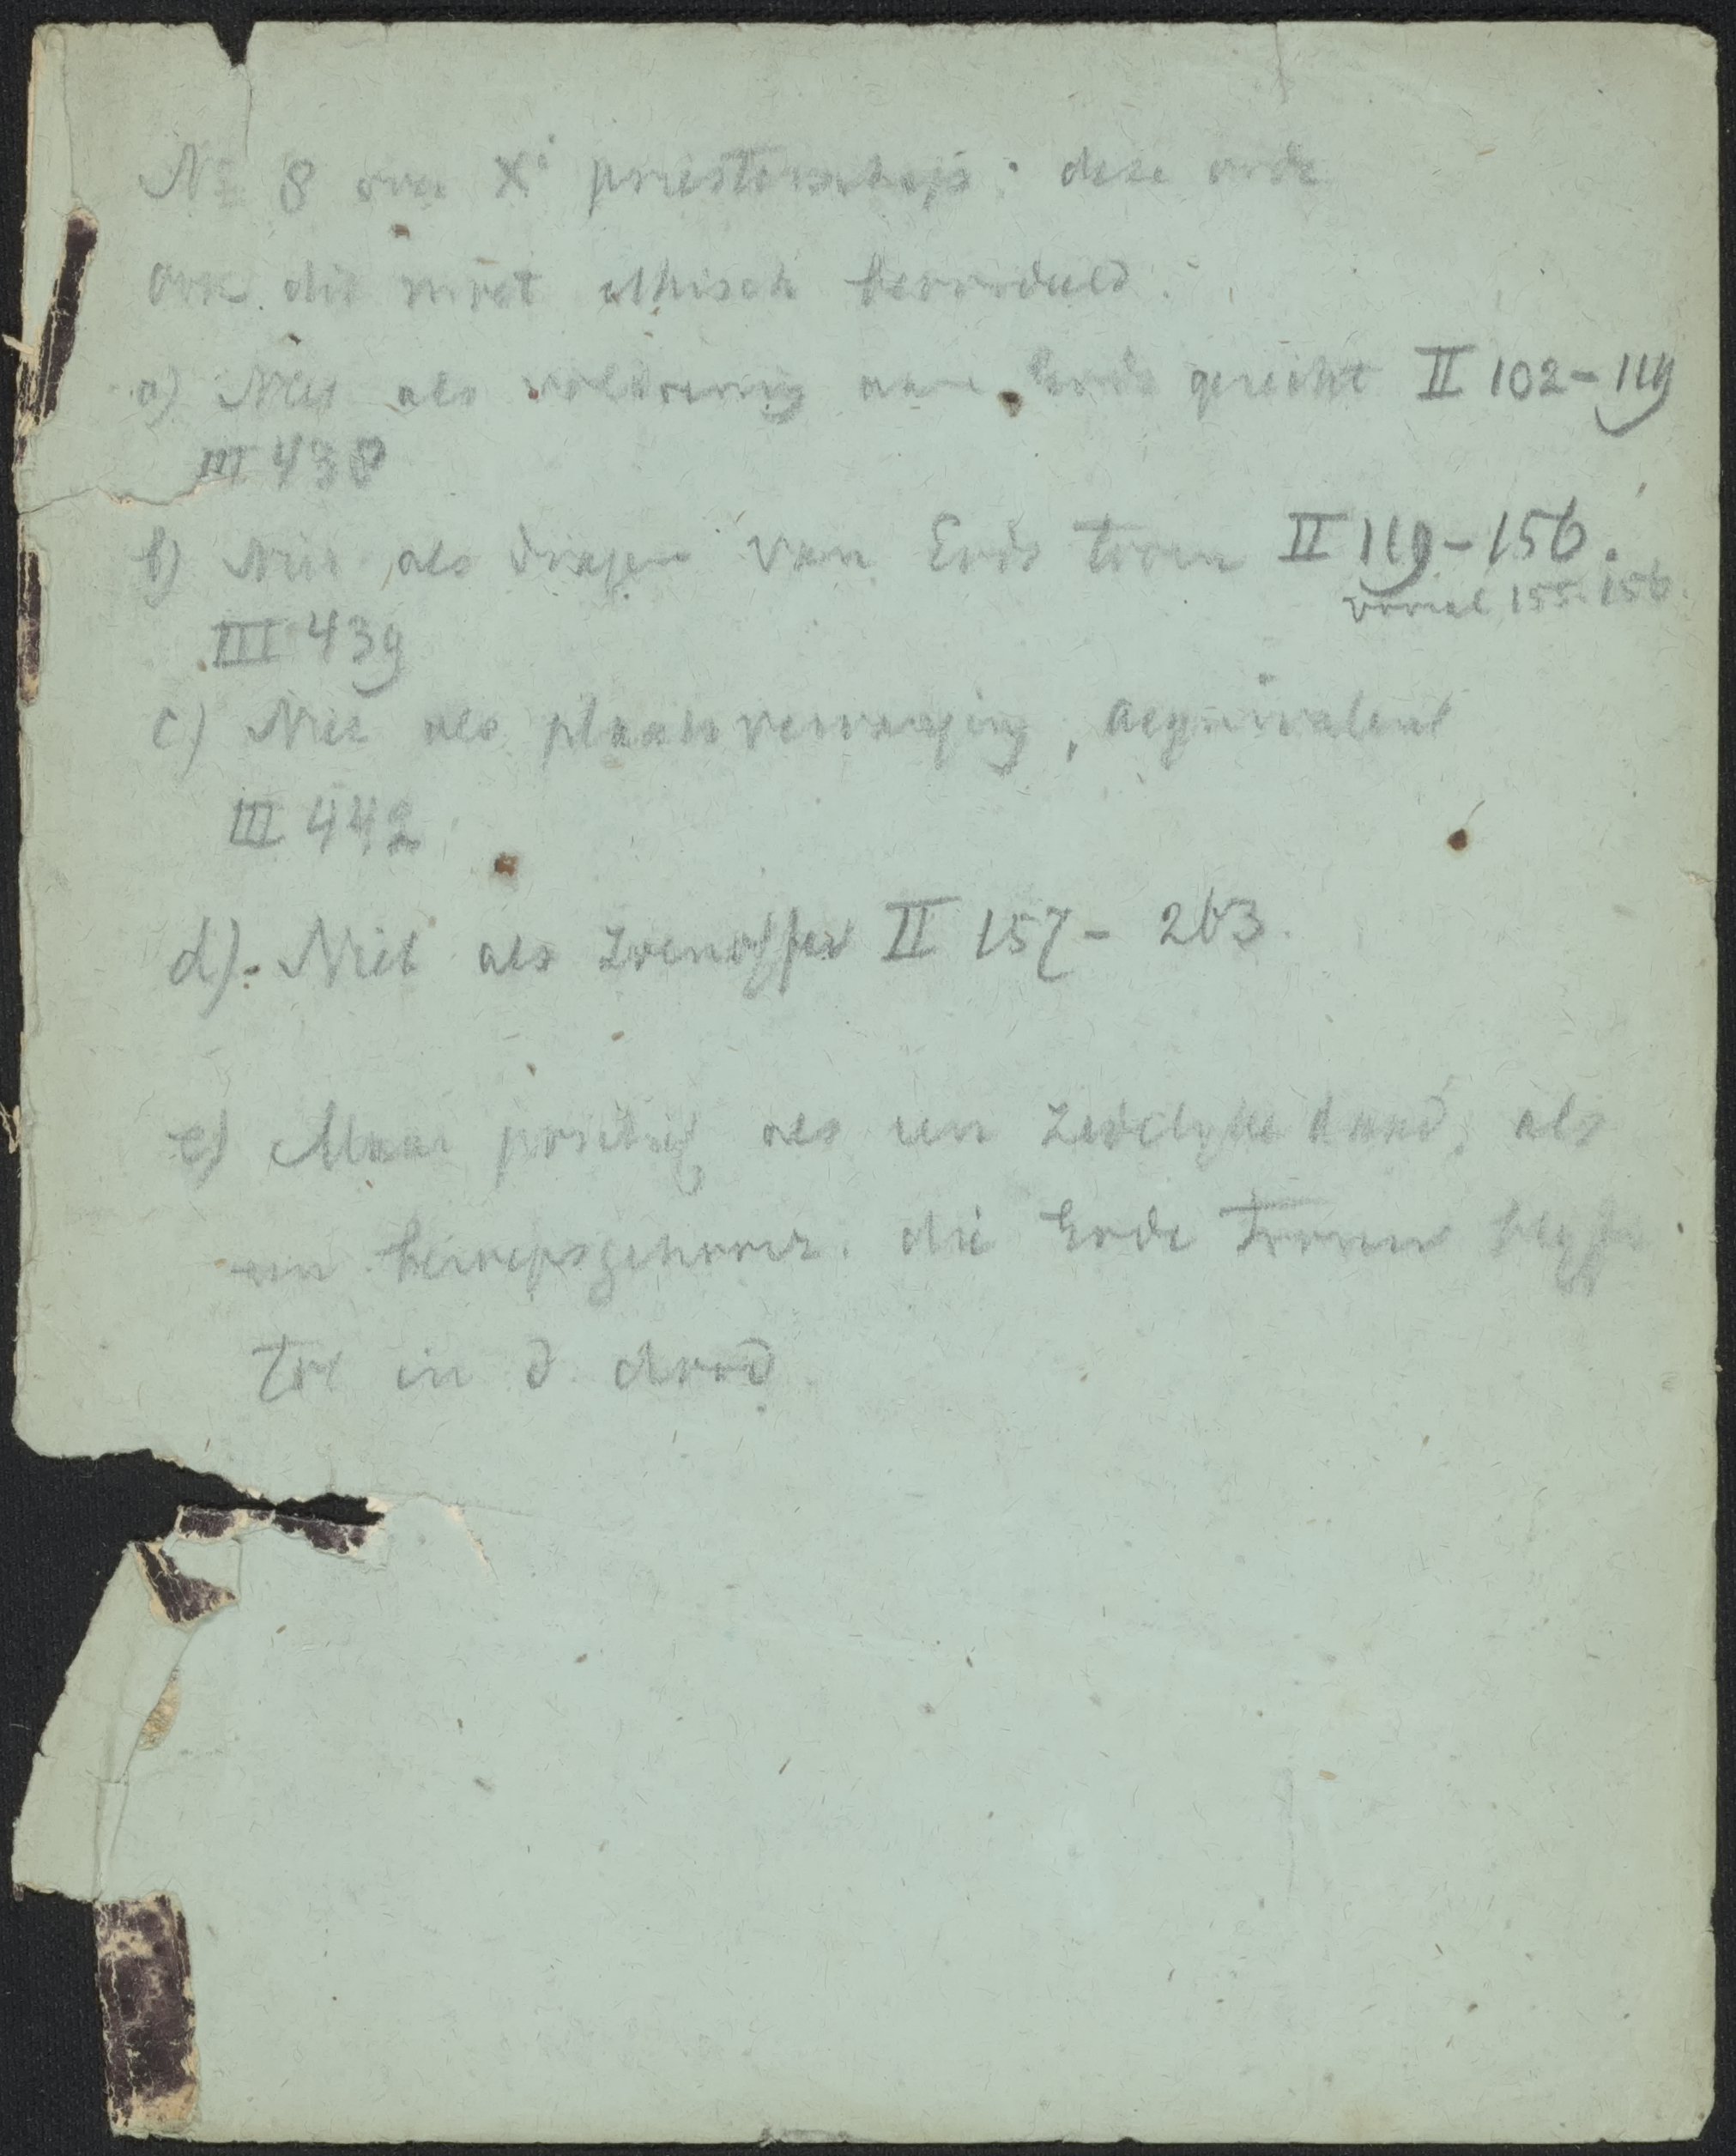 No 8 over X' priesterschap: deze orde
ook dit moet ethisch beoordeeld.
a) Niet als voldoening aan Gods gericht II 102-119
III 438
b) Niet als drager van Gods toorn II 119-156.
vooral 155-156.
III 439
c) Niet als plaatsvervanging, aequivalent
III 442.
d). Niet als zoenoffer II 157-263.
e) Maar positief als een zedelijke daad, als
een beroepsgehoorz. die Gode trouw blijft
tot in d. dood.